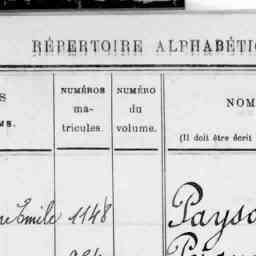 RÉPERTOIRE ALPHABÉTI
S
MS.
NUMÉROS
ma-
tricules.
NUMÉRO
du
volume.
NOM
(Il doit être écrit
Emile 1148
Payso